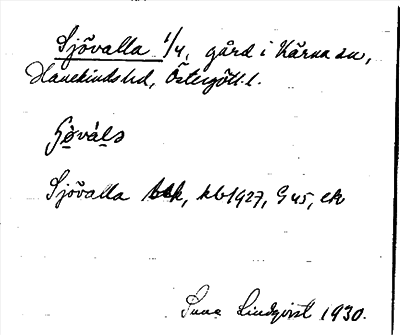 Sjövalla 1/4, gård i Kärna sn,
Hanekinds hd, Östergötl. l.
Sjövalla kk, kb 1927, G 45, ek
Sune Lindqvist 1930.